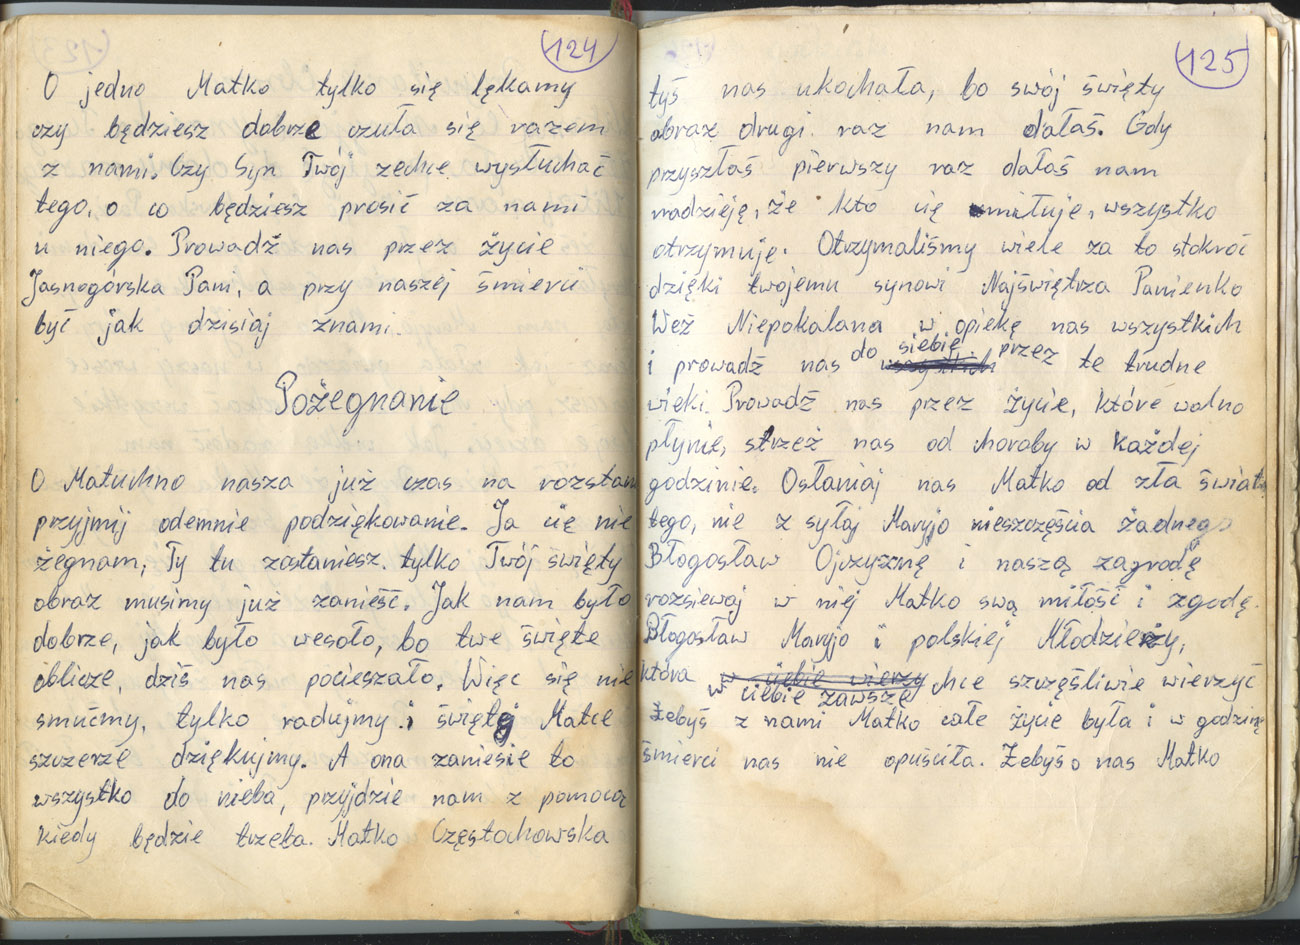 124
O jedno Matko tylko się lękamy
czy będziesz dobrze czuła się razem
z nami. Czy Syn Twój zechce wysłuchać
tego, o co będziesz prosić za nami
u niego. Prowadź nas przez życie
Jasnogórska Pani, a przy naszej śmierci
być jak dzisiaj znami.
Pożegnanie
O Matuchno nasza już czas na rozstan
przyjmij odemnie podziękowanie. Ja cię nie
żegnam, Ty tu zostaniesz. tylko Twój święty
obraz musimy już zanieść. Jak nam było
dobrze, jak było wesoło, bo twe święte
oblicze, dziś nas pocieszało. Więc się nie
smućmy, tylko radujmy i świętej Matce
szczerze dziękujmy. A ona zaniesie to
wszystko do nieba, przyjdzie nam z pomocą
kiedy będzie trzeba. Matko Częstochowska
125
tyś nas ukochała, bo swój święty
obraz drugi raz nam dałaś. Gdy
przyszłaś pierwszy raz dałaś nam
nadzieję, że kto cię umiłuje, wszystko
otrzymuje. Otrzymaliśmy wiele za to stokroć
dzięki twojemu synowi Najświętrza Panienko
Weź Niepokalana w opiekę nas wszystkich
i prowadź nas do siebie wszystkich przez te trudne
wieki. Prowadź nas przez życie, które wolno
płynie, strzeż nas od choroby w każdej
godzinie. Osłaniaj nas Matko od zła świata
tego, nie z syłaj Maryjo nieszczęścia żadnego
Błogosław Ojczyznę i naszą zagrodę
rozsiewaj w niej Matko swą miłość i zgodę.
Błogosław Maryjo i polskiej Młodzieży,
która w ciebie wierzy w ciebie zawsze chce szczęśliwie wierzyć
Żebyś z nami Matko całe życie była i w godzinę
śmierci nas nie opuściła. Żebyś o nas Matko